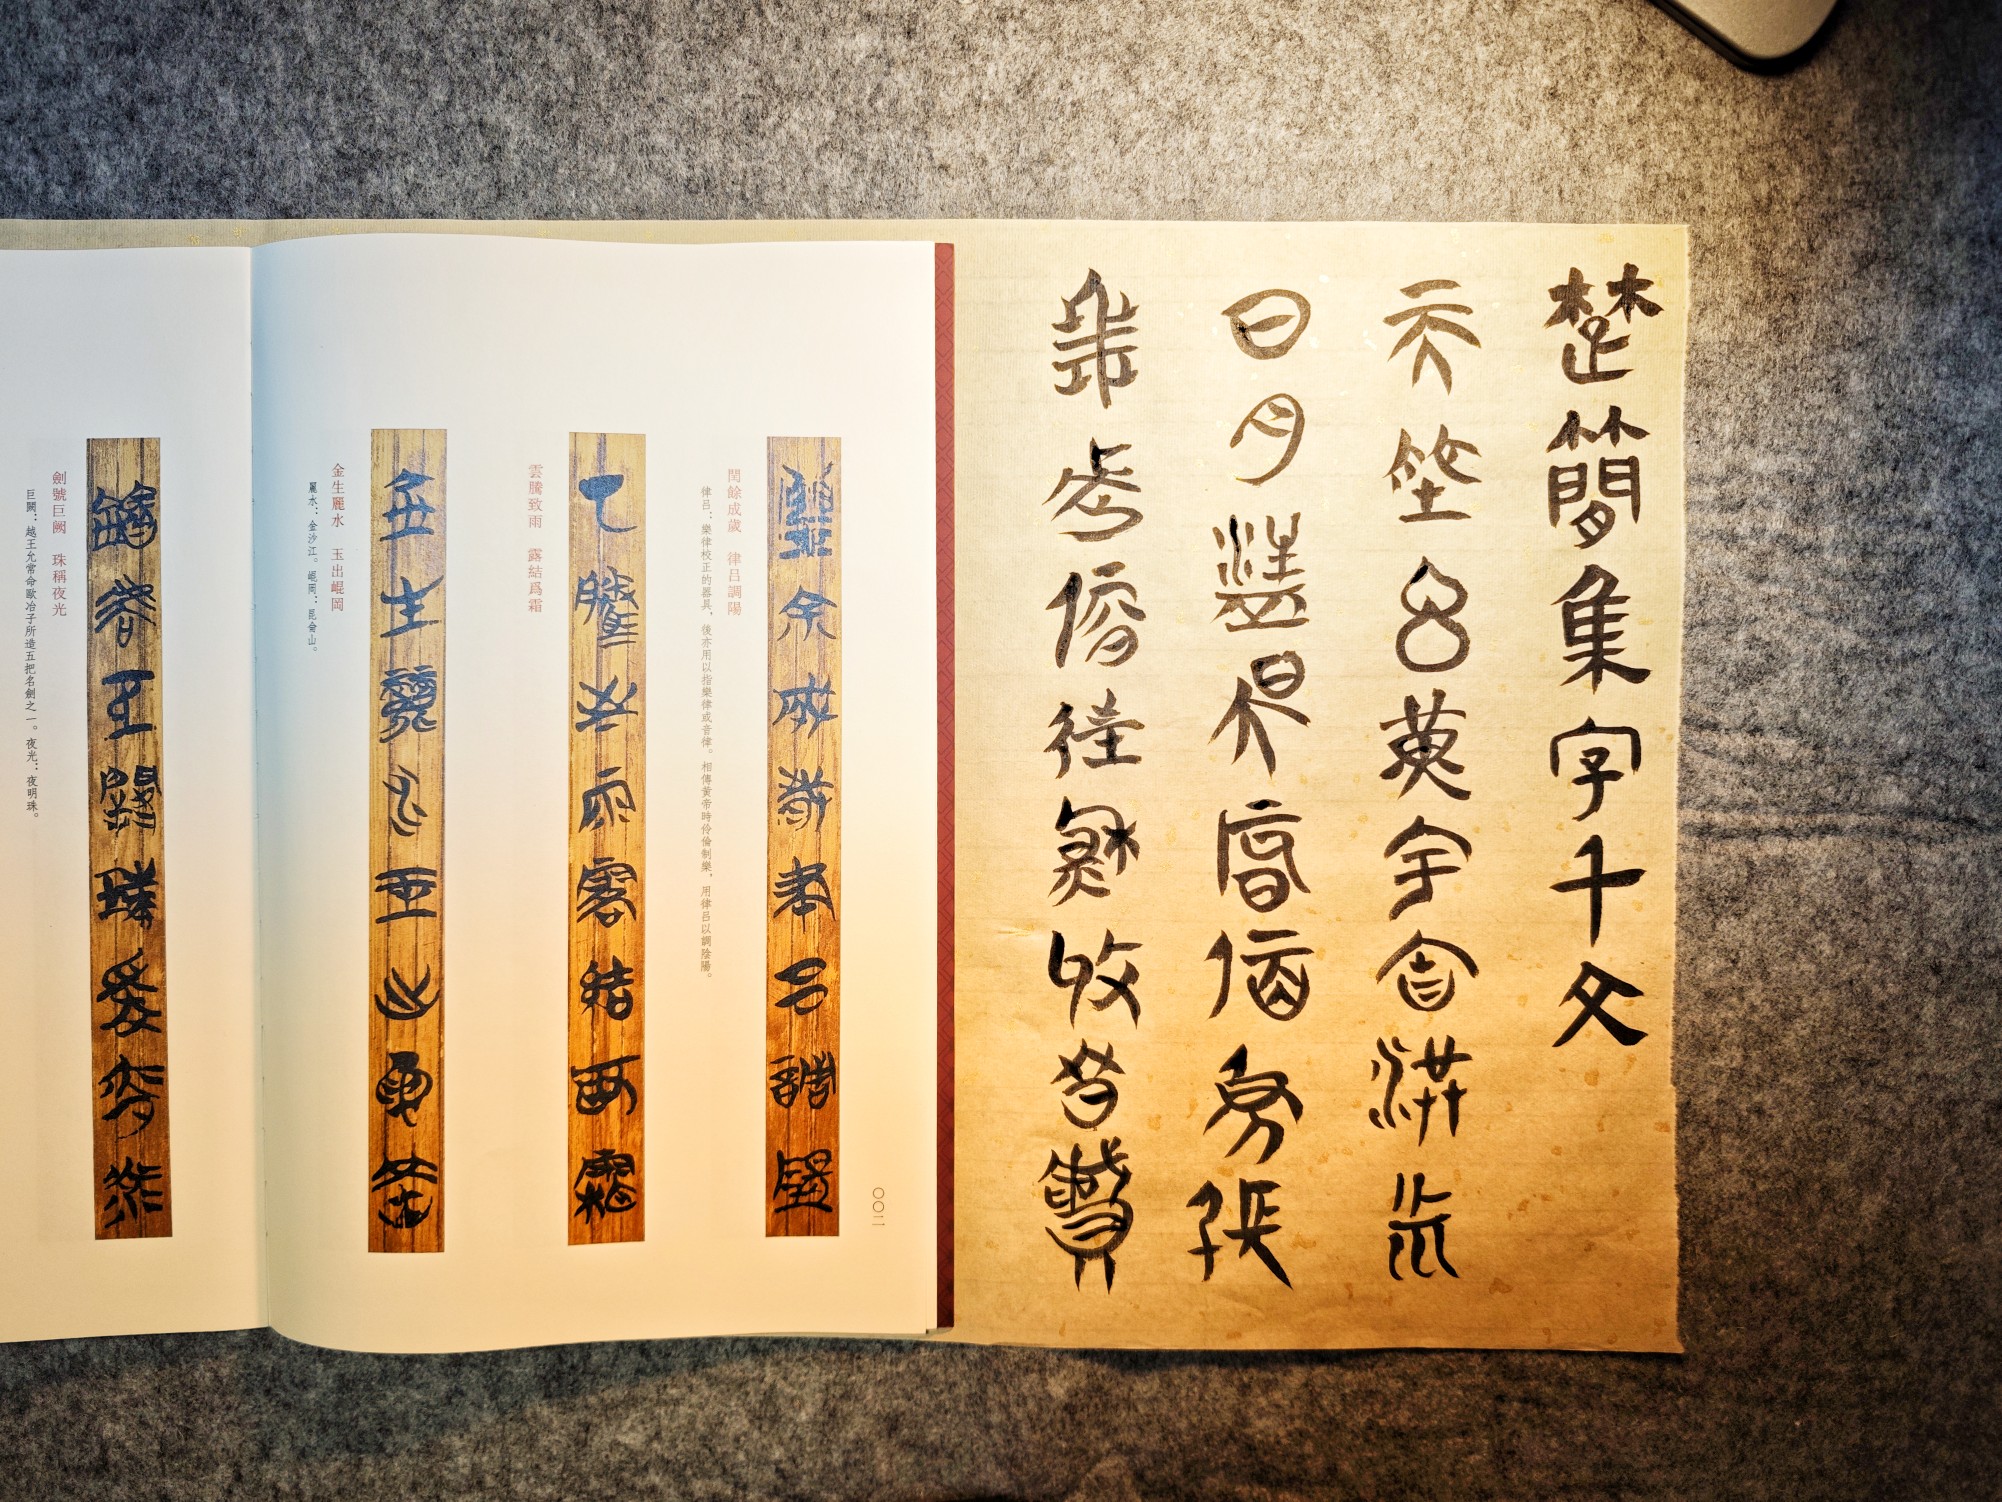 楚簡集字千文
天地玄黃宇宙洪荒
日月盈昃辰宿列張
寒來暑往秋收冬藏
閏餘成歲律呂調陽
閏餘成歲　律呂調陽
律呂：樂律校正的器具，後亦用以指樂律或音律。相傳黃帝時伶倫制樂，用律呂以調陰陽。
雲騰致雨露結爲霜
雲騰致雨　露結爲霜
金生麗水玉出崐岡
金生麗水　玉出崐岡
麗水：金沙江。崐岡：昆侖山。
劍號巨闕珠稱夜光
劍號巨闕　珠稱夜光
巨闕：越王允常命歐冶子所造五把名劍之一。夜光：夜明珠。
〇〇二